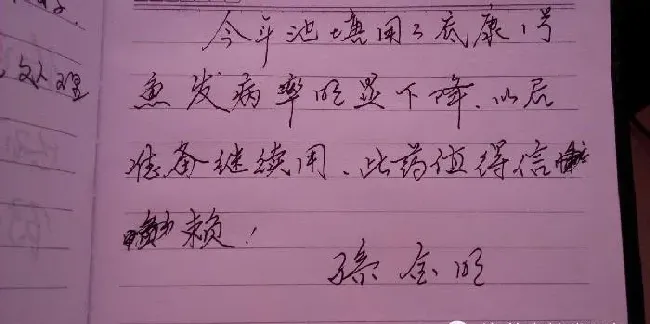 今年池塘用了底康1号
鱼发病率明显下降、以后
准备继续用、此药值得信
赖!
孙金明
处理